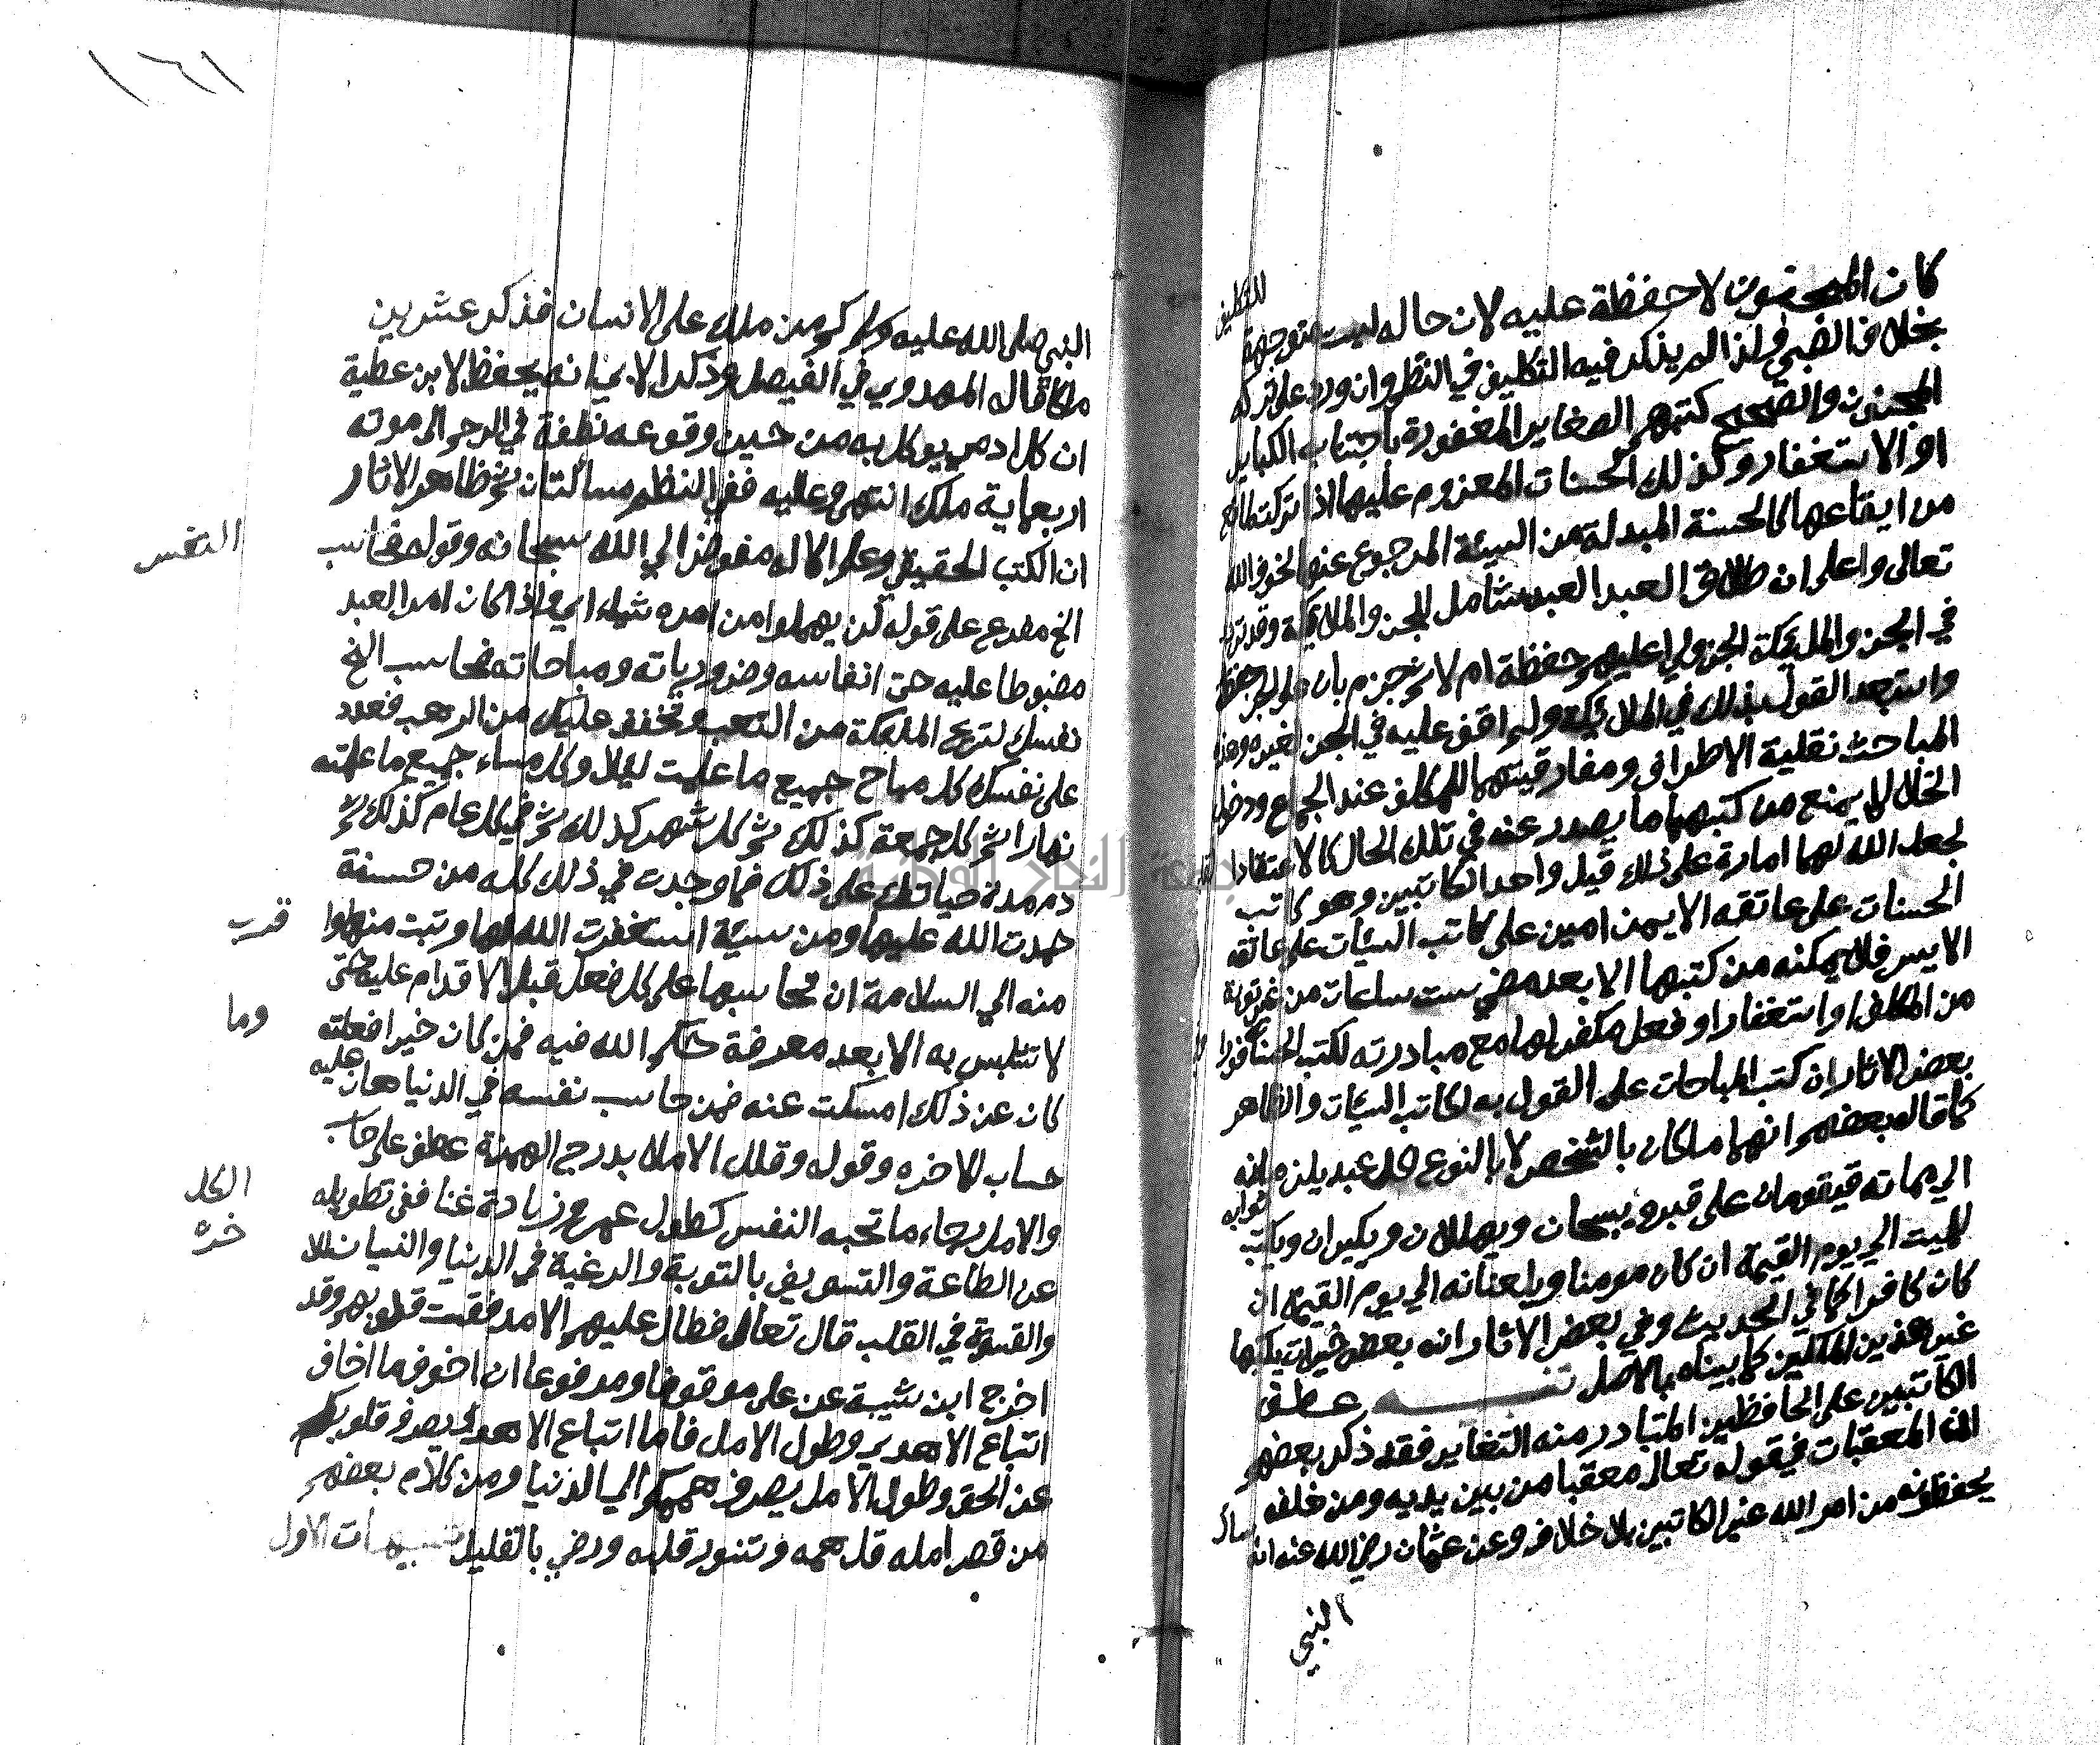 كان المجنون لا حفظة عليه لان حاله ليست متوجهة للتكليف
بخلاف الصبي ولذا لم يذكر فيه التكليف في النظم وان ورد على تركه
المجنون والصحيح كتبهم الصغاير المغفورة باجتناب الكباير
او الاستغفار وكذلك الحسنات المعزوم عليها اذا تركت لمانع
من ايقاعها كالحسنة المبدلة من السيئة المرجوع عنها لخوف الله
تعالى واعلم ان طلاق العبد العبد شامل للجن والملائكة وقد تردد
في الجن والملئكة الجزولي اعليهم حفظة ام لا ثم جزم بان على الجن حفظة
واستبعد القول بذلك في الملائكة ولم اقف عليه في الجن لغيره وهذه
المباحث نقلية الاطراف ومفارقتهما للمكلف عند الجماع ودخول
الخلا لا يمنع من كتبهما ما يصدر عنه في تلك الحال كالاعتقاد
يجعل الله لهما امارة على ذلك قيل واحد الكاتبين وهو كاتب
الحسنات على عاتقه الايمن امين على كاتب السيئات على عاتقه
الايسر فلا يمكنه من كتبها الا بعد مضي ست ساعات من غير توبة
من المكلف او استغفار او فعل مكفر لها مع مبادرته لكتب الحسنات فورا
بعض الاثار ان كتب المباحات على القول به لكاتب السيئات والظاهر
كما قاله بعضهم انهما ملكان بالشخص لا بالنوع لكل عبد يلزمانه
الي مماته فيقومان على قبره يسبحان ويهللان ويكبران ويكتب ثوابه
للميت الي يوم القيمة ان كان مومنا ويلعنانه الي يوم القيمة ان
كان كافرا كما في الحديث وفي بعض الاثار انه بعض خيرات يكتبها
غير هذين الملكين كما بيناه بالاصل تنبيه عطف
الكاتبين على الحافظين المتبادر منه التغاير فقد ذكر بعضهم
ان المعقبات في قوله تعالى معقبات من بين يديه ومن خلفه
يحفظونه من امر الله غير الكاتبين بلا خلاف وعن عثمان رضي الله عنه انه سأل
النبي
١٦١
النبي صلى الله عليه وسلم كم من ملك على الانسان فذكر عشرين
ملكا قاله المهدوي في الفيصل وذكر الابي انه يحفظ لابن عطية
ان كل ادمي يوكل به من حين وقوعه نطفة في الرحم الى موته
اربعماية ملك انتهى وعليه ففي النظم مسألتان ثم ظاهر الاثار
ان الكتب الحقيقي وعلم الاله مفوض الي الله سبحانه وقوله فحاسب النفس
الخ مفرع على قوله لن يهملوا من امره شيئا اي واذا كان امر العبد
مضبوطا عليه حتى انفاسه وضرورياته ومباحاته فحاسب الخ
نفسك لتريح الملئكة من التعب وتخفف عليك من الرهب فعدد
على نفسك كل صباح جميع ما علمت ليلا وكل مساء جميع ما علمته
نهارا ثم كل جمعة كذلك ثم كل شهر كذلك ثم في كل عام كذلك ثم
دم مدة حياتك على ذلك فما وجدت في ذلك كله من حسنة
حمدت الله عليها ومن سيئة استغفرت الله لها وتبت منها وا قرب
منه الي السلامة ان تحاسبها على كل فعل قبل الاقدام عليه حتى
لا تتلبس به الا بعد معرفة حكم الله فيه فمن كان خيرا فعلته وما
كان عن ذلك امسكت عنه فمن حاسب نفسه في الدنيا هان عليه
حساب الاخره وقوله وقلل الاملا بدرج الهمزة عطف على حاسب
والامل رجاء ما تحبه النفس كطول عمر وزيادة غنا ففي تطويله الكل
عن الطاعة والتسويف بالتوبة والرغبة في الدنيا والنسيان للا خره
والقسوة في القلب قال تعالى فطال عليهم الامد فقست قلوبهم وقد
اخرج ابن شيبة عن علي موقوفا ومرفوعا ان اخوف ما اخاف
اتباع الاهوي وطول الامل فاما اتباع الاهوا يصرف قلوبكم
عن الحق وطول الامل يصرف هممكم الي الدنيا ومن كلام بعضهم
من قصر امله قل همه وتنور قلبه ورضي بالقليل تنبيهات الاول